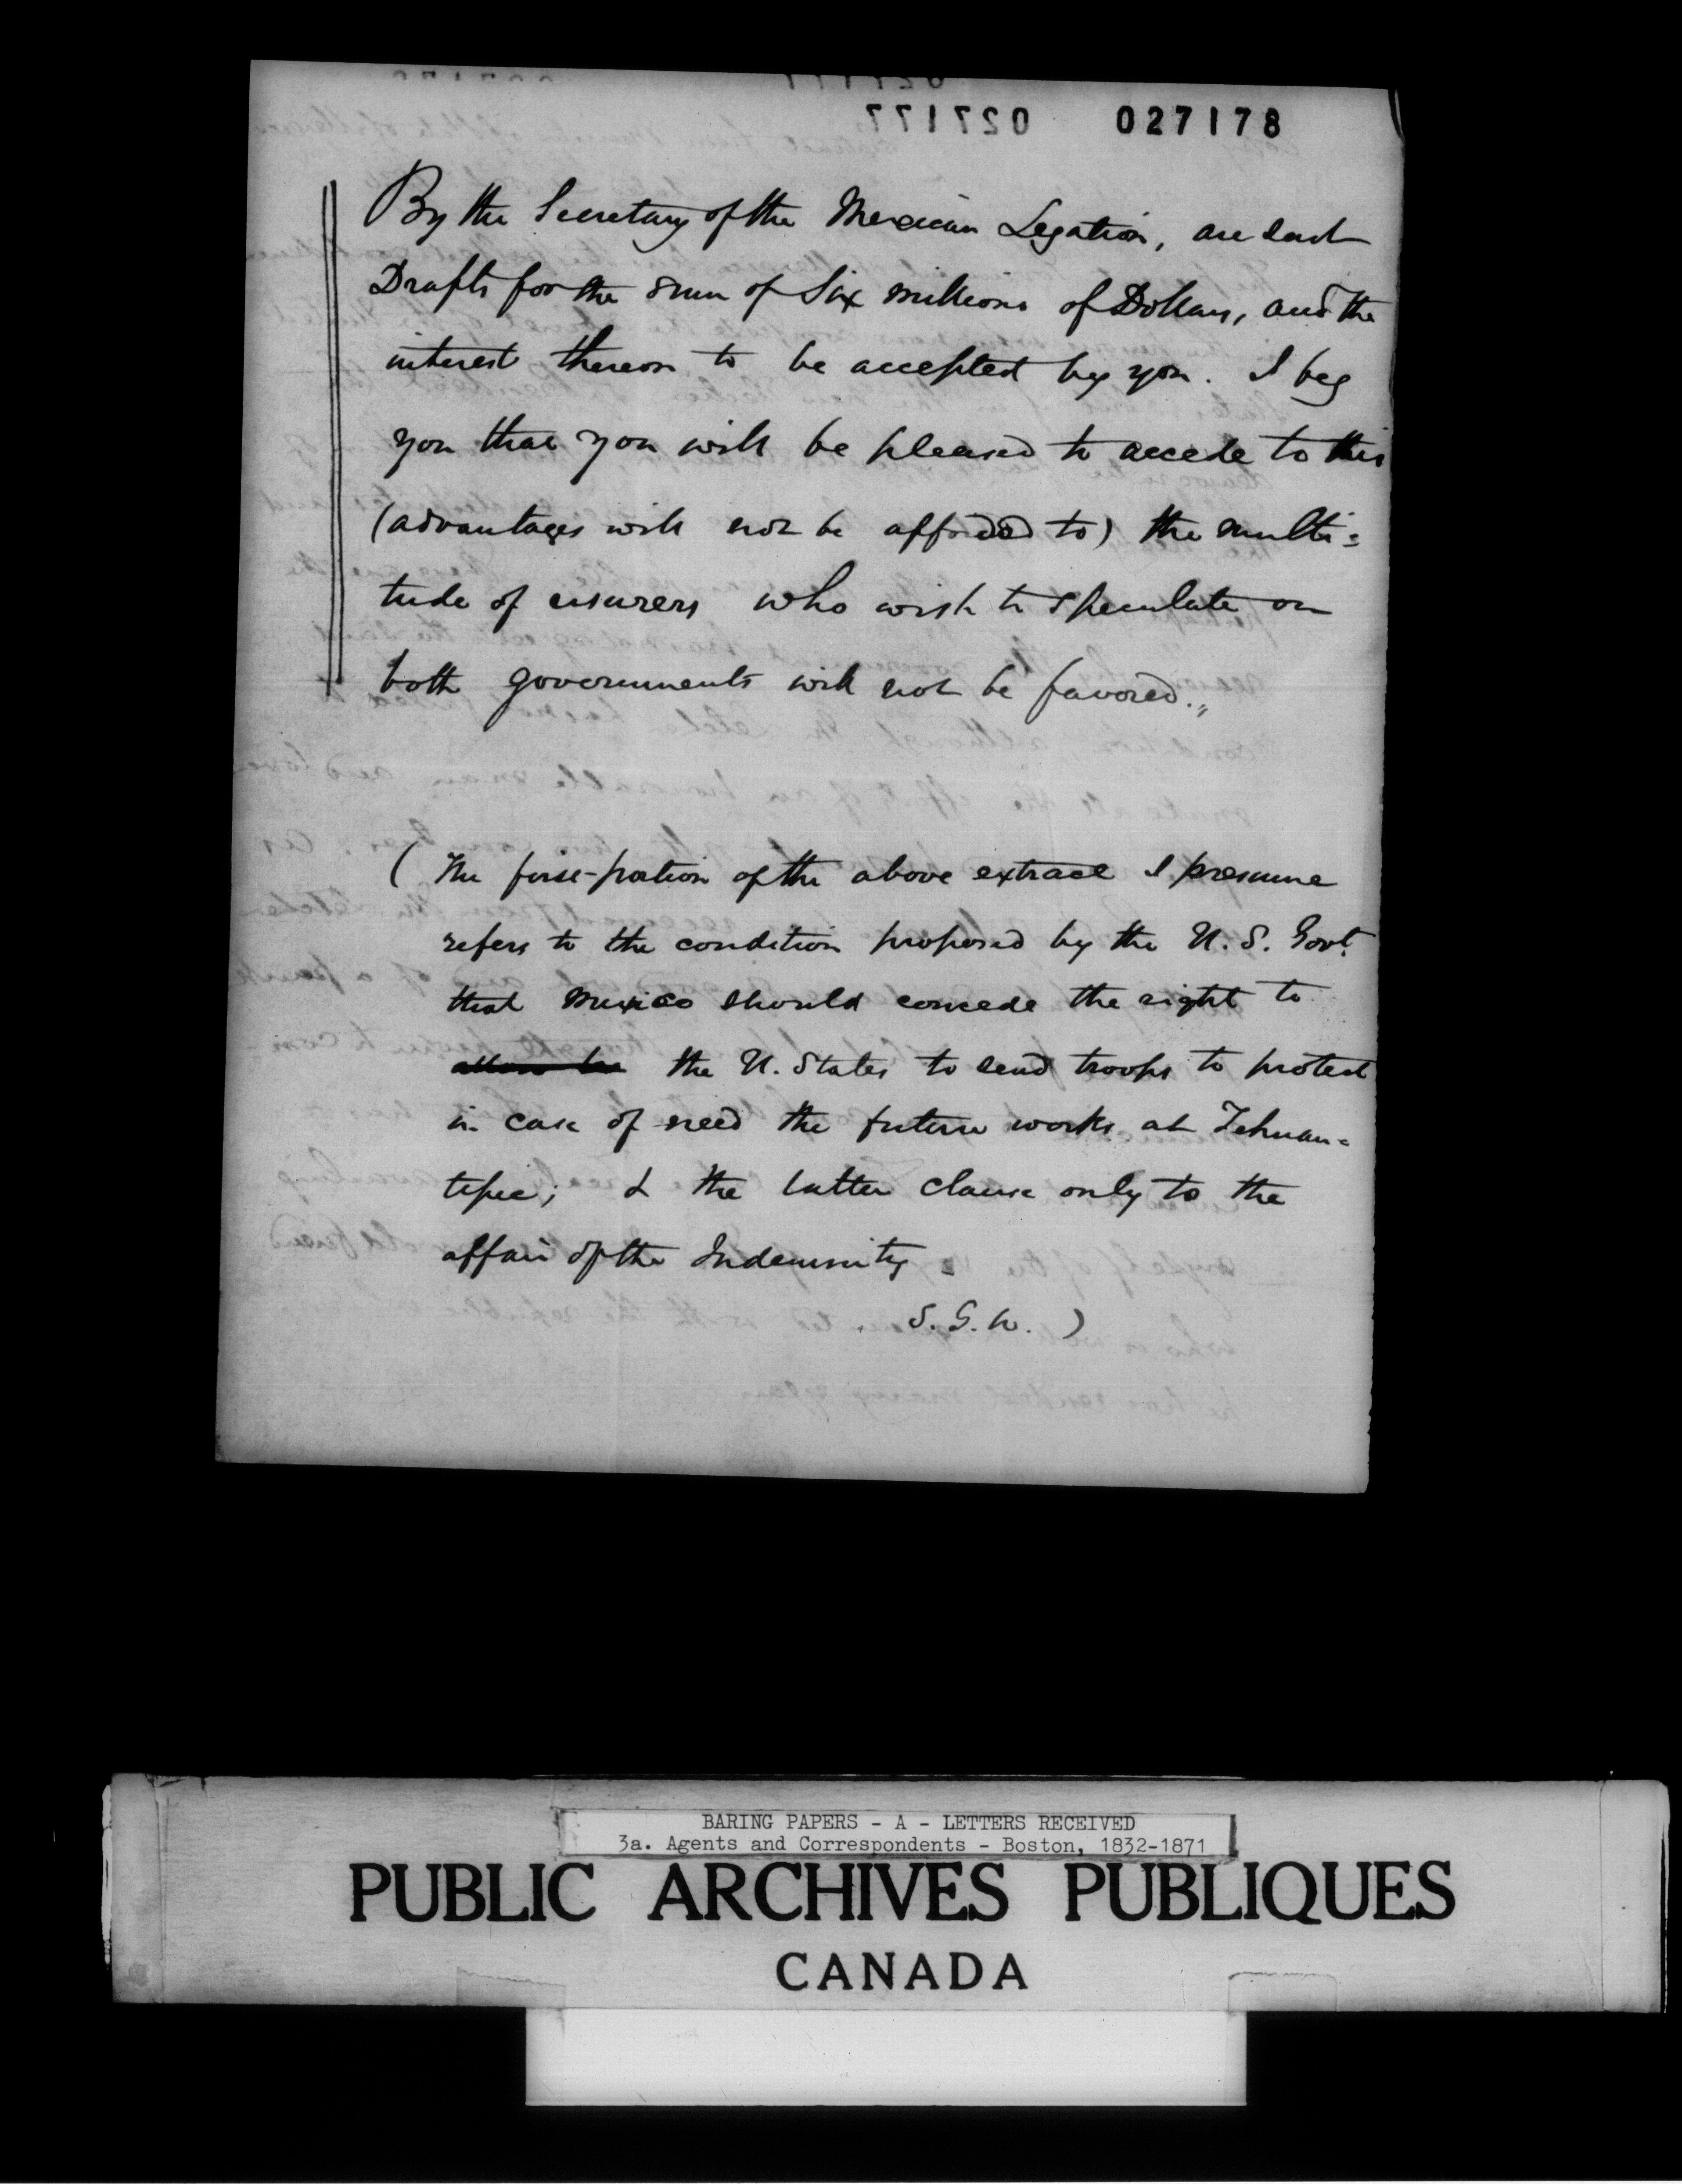 027177 027178
By the Secretary of the Mexican Legation, are sent
Drafts for the sum of Six millions of Dollars, and the
interest thereon to be accepted by you. I beg
you that you will be pleased to accede to this
(advantages will not be afforded to) the multi=
tude of usurers who wish to speculate on
both governments will not be favored.„
( The first portion of the above extract I presume
refers to the condition proposed by the U. S. Govt.
that Mexico should concede the right to
the U. States to send troops to protect
in case of need the future works at Tehuan=
tepec; & the latter clause only to the
affair of the Indemnity –
S. G. W. )
BARING PAPERS - A - LETTERS RECEIVED
3a. Agents and Correspondents - Boston, 1832-1871
PUBLIC ARCHIVES PUBLIQUES
CANADA